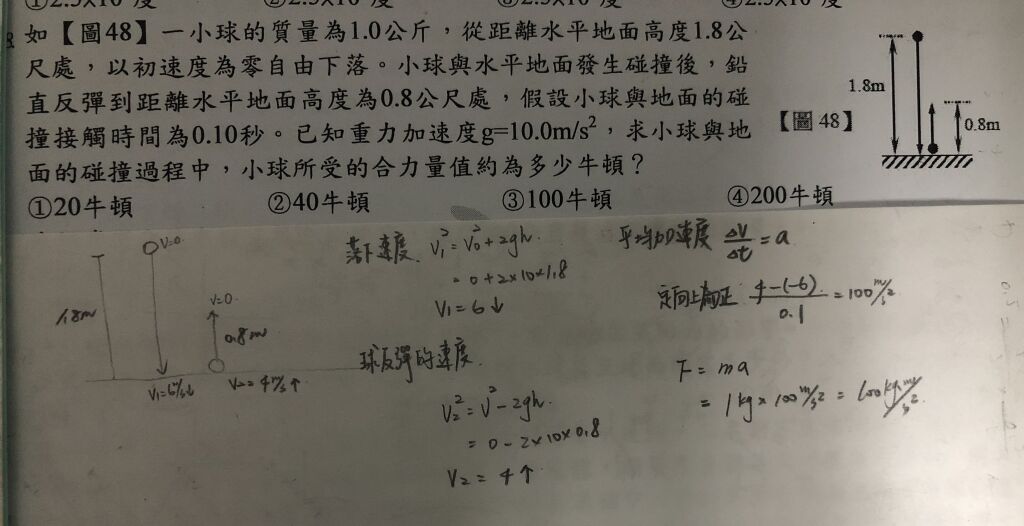 ①2.5x10 度 ②2.5x10 度 ③2.5x10 度 ④2.5x10 度
如【圖48】一小球的質量為1.0公斤，從距離水平地面高度1.8公
尺處，以初速度為零自由下落。小球與水平地面發生碰撞後，鉛
直反彈到距離水平地面高度為0.8公尺處，假設小球與地面的碰
撞接觸時間為0.10秒。已知重力加速度g=10.0m/s²，求小球與地
面的碰撞過程中，小球所受的合力量值約為多少牛頓？
①20牛頓 ②40牛頓 ③100牛頓 ④200牛頓
1.8m
0.8m
【圖 48】
V=0
1.8m
V=0
0.8m
V₁=6m/s↓
V₂=4m/s↑
落下速度 V₁²=V₀²+2gh
=0+2×10×1.8
V₁=6↓
球反彈的速度
V₂²=V²-2gh
=0-2×10×0.8
V₂=4↑
平均加速度 ΔV/Δt=a
定向上為正 4-(-6)/0.1=100m/s²
F=ma
=1kg×100m/s²=100kg m/s²